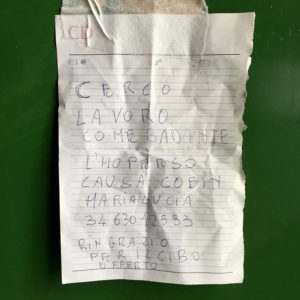 CD
CERCO
LAVORO
COME BADANTE
L'HO PERSO
CAUSA COBIN
MARIA LUCIA
RINGRAZIO
PER IL CIBO
OFFERTO